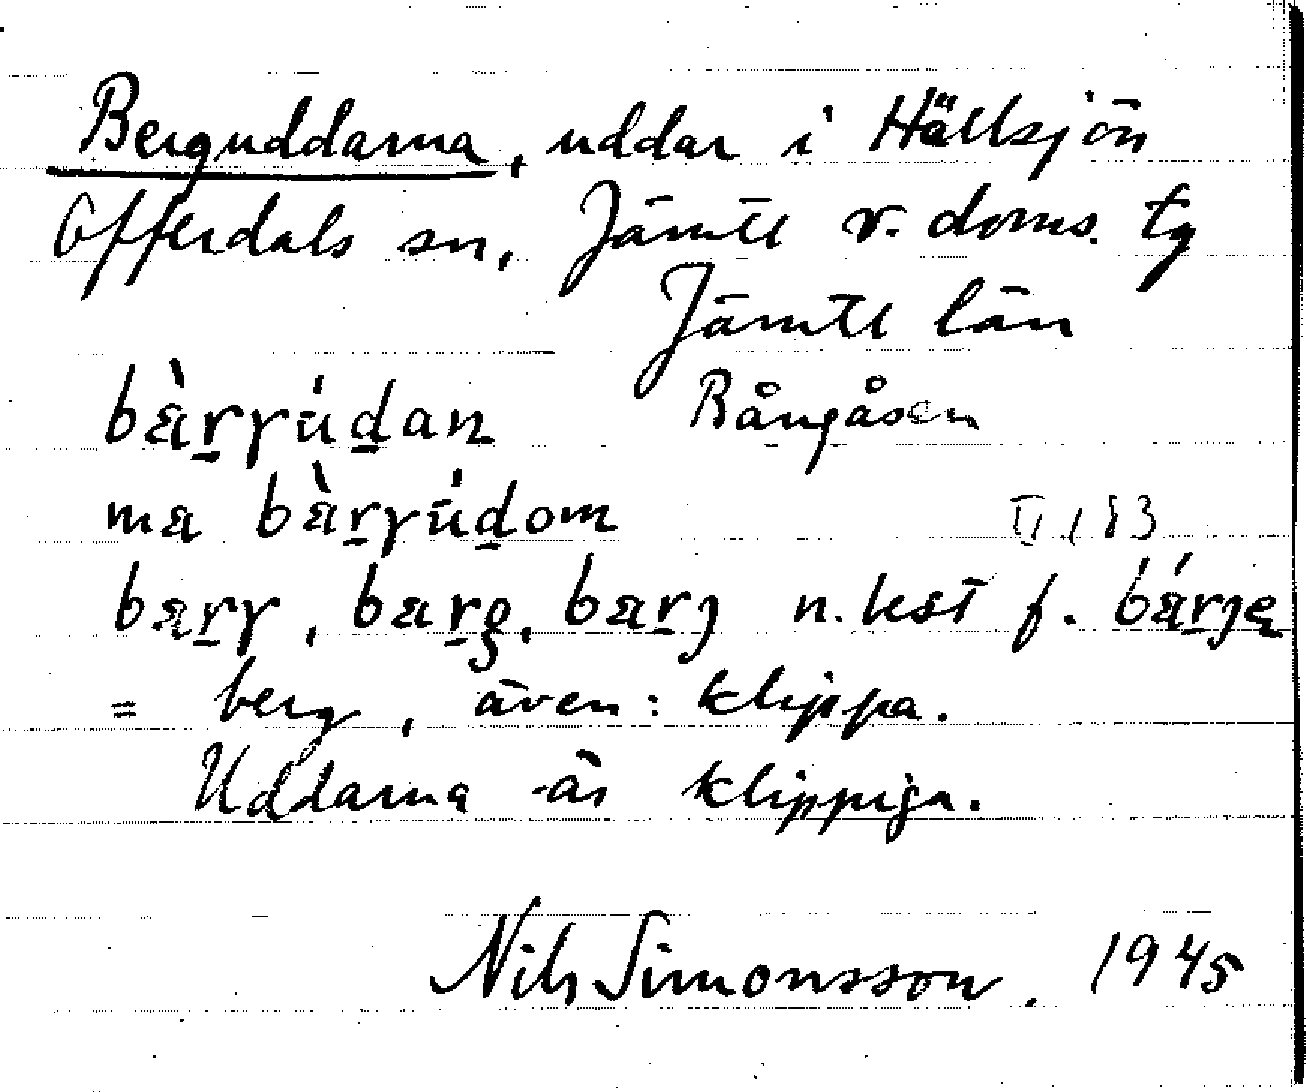 Berguddarna, uddar i Hällsjön
Offerdals sn, Jämtl v. doms. tg
Jämtl län
bàr̠γúd̠an Rångåsen
ma bàr̠γúd̠om
bar̠γ, bar̠g, bar̠j n. kst f. bár̠je
= berg, även: klippa.
Uddarna är klippiga.
Nils Simonsson. 1945